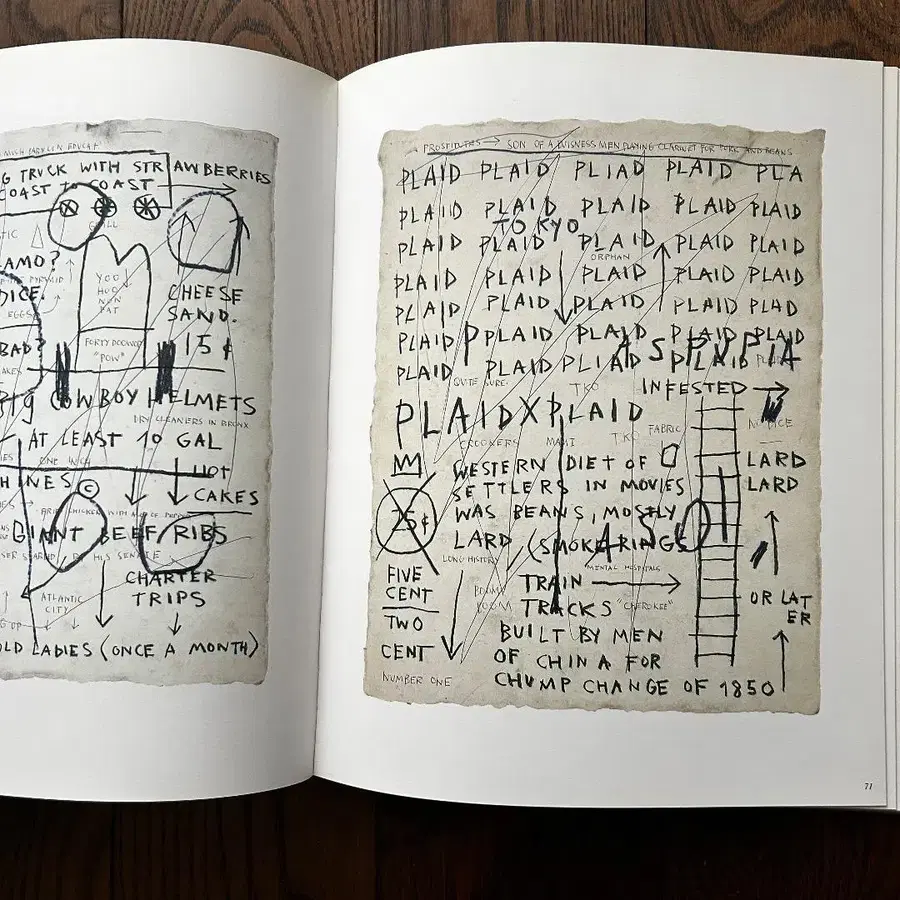 G TRUCK WITH STRAWBERRIES
COAST TO COAST
AMO?
DICE.
EGGS
YOO
HOO
CHEESE
SAND.
15 ¢
BAD?
"POW"
COWBOY HELMETS
DRY CLEANERS IN BRONX
AT LEAST 10 GAL
ONE INCH
HOT
CAKES
HINES ©
GIANT BEEF RIBS
CHARTER
TRIPS
ATLANTIC
CITY
OLD LADIES (ONCE A MONTH)
PROSTITUTES → SON OF A BUISNESS MEN PLAYING CLARINET FOR PORK AND BEANS
PLAID PLAID PLIAD PLAID PLA
PLAID PLAID PLAID PLAID PLAID
TOKYO
PLAID PLAID PLAID PLAID PLAID
ORPHAN
PLAID PLAID PLAID PLAID PLAID
PLAID PLAID PLAID PLAID PLAID
PLAID PPLAID PLAID PLAID PLAID
ASPUPIA
PLAID PLAID PLIAD PLAID
QUITE SURE.
TKO
INFESTED →
PLAIDXPLAID
TKO
FABRIC
CROOKERS
WESTERN DIET OF
LARD
SETTLERS IN MOVIES
LARD
25¢
WAS BEANS, MOSTLY
LARD (SMOKE RINGS
ASO
LONG HISTORY
MENTAL HOSPITALS
FIVE
CENT
TRAIN →
TRACKS "CHEROKEE"
OR LAT
ER
TWO
CENT
BUILT BY MEN
OF CHINA FOR
NUMBER ONE
CHUMP CHANGE OF 1850
71